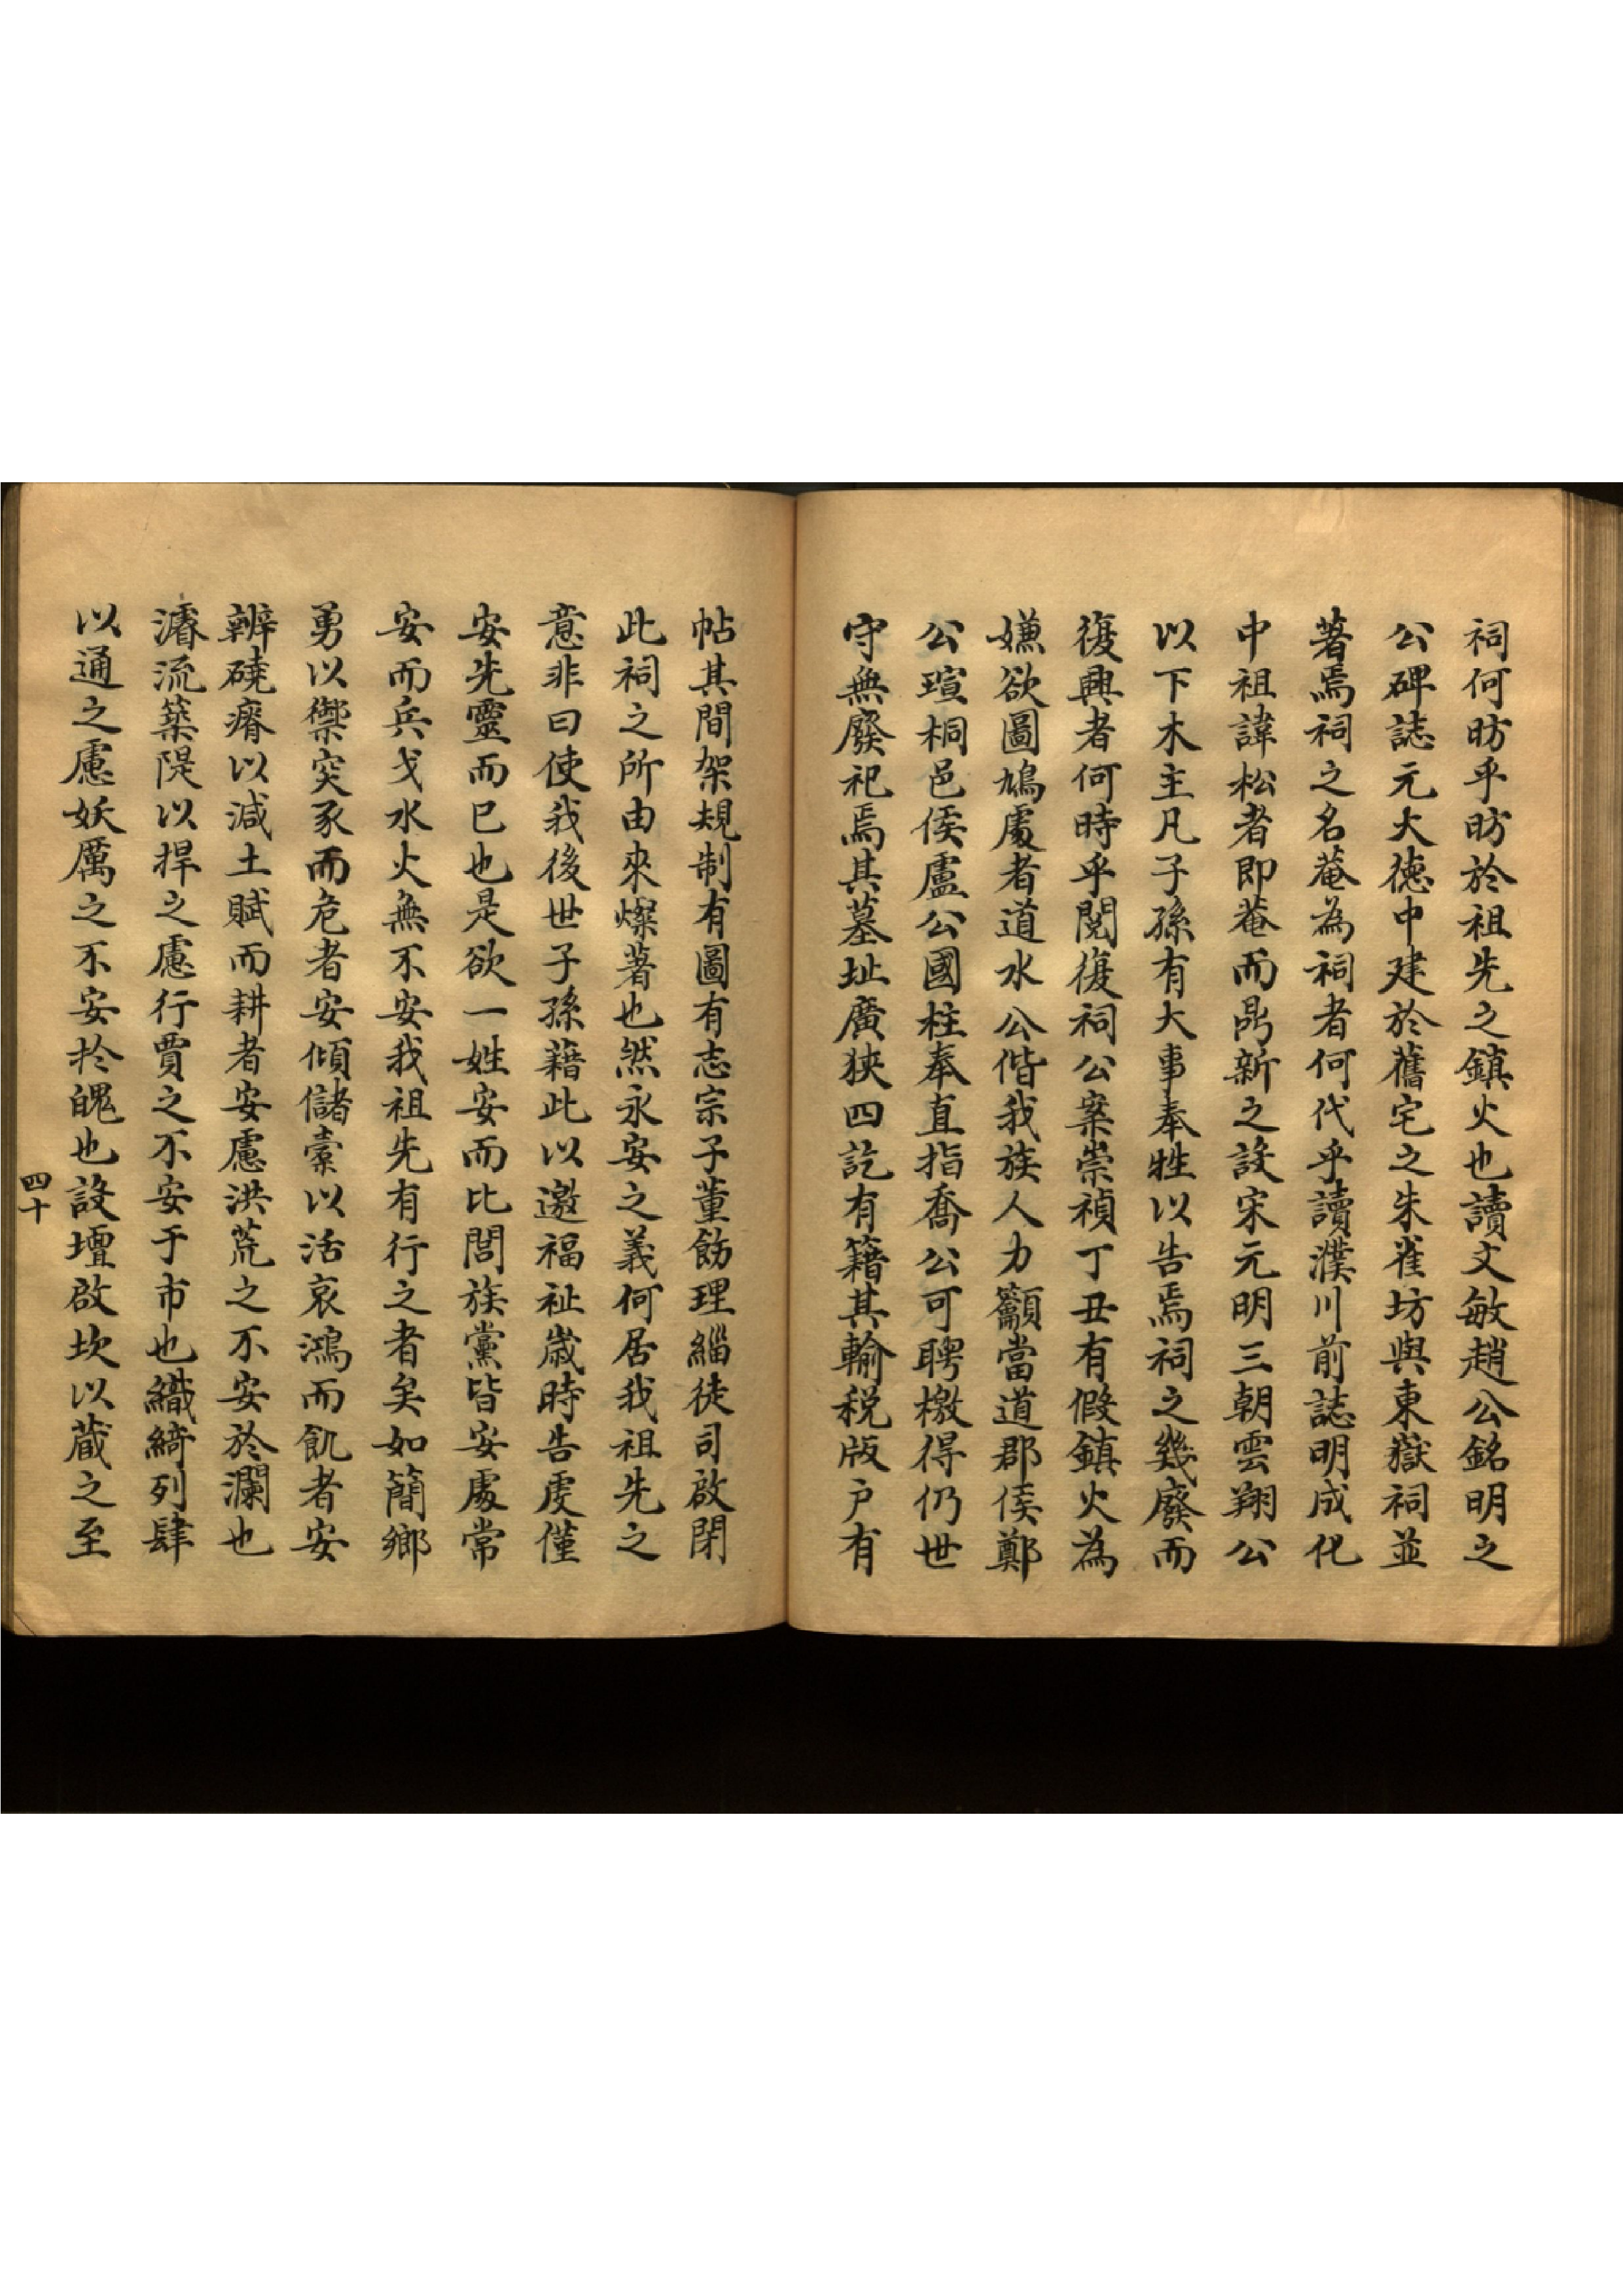 祠何昉乎昉於祖先之鎮火也讀文敏趙公銘明之
公碑誌元大德中建於舊宅之朱雀坊與東嶽祠並
著焉祠之名菴為祠者何代乎讀濮川前誌明成化
中祖諱松者即菴而鼎新之設宋元明三朝雲翔公
以下木主凡子孫有大事奉牲以告焉祠之幾廢而
復興者何時乎閱復祠公案崇禎丁丑有假鎮火為
嫌欲圖鳩處者道水公偕我族人力籲當道郡侯鄭
公瑄桐邑侯盧公國柱奉直指喬公可聘檄得仍世
守無廢祀焉其墓址廣狹四訖有籍其輸税版户有
帖其間架規制有圖有志宗子董飭理緇徒司啟閉
此祠之所由來燦著也然永安之義何居我祖先之
意非曰使我後世子孫藉此以邀福祉歲時告虔僅
安先靈而已也是欲一姓安而比閭族黨皆安處常
安而兵戈水火無不安我祖先有行之者矣如簡鄉
勇以禦突豕而危者安傾儲橐以活哀鴻而飢者安
辨磽瘠以減土賦而耕者安慮洪荒之不安於瀾也
濬流築隄以捍之慮行賈之不安于市也織綺列肆
以通之慮妖厲之不安於魄也設壇啟坎以蔵之至
四十